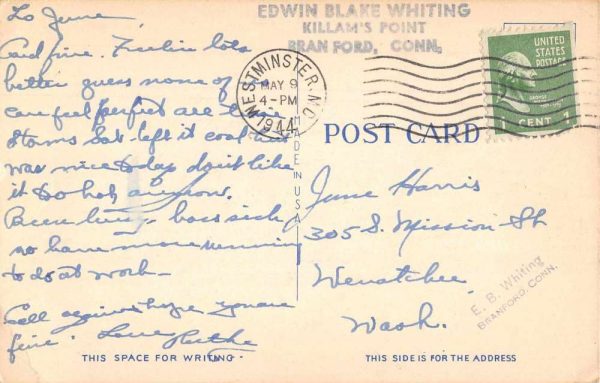 EDWIN BLAKE WHITING
KILLAM'S POINT
BRANFORD, CONN.
UNITED
STATES
POSTAGE
1 CENT 1
WESTMINSTER, MD.
MAY 9
4-PM
1944
POST CARD
MADE IN U.S.A.
To June,
Card fine. Feelin lots
better guess none of
can feel perfect all time
storms Sat. left it cool but
was nice today don't like
it so hot anyhow.
Been busy, boss sick
so have more running
to do at work—
Call again hope you are
fine. Love Ruthe
June Harris
305 S. Mission St
Wenatchee
Wash.
E. B. Whiting
BRANFORD, CONN.
THIS SPACE FOR WRITING
THIS SIDE IS FOR THE ADDRESS